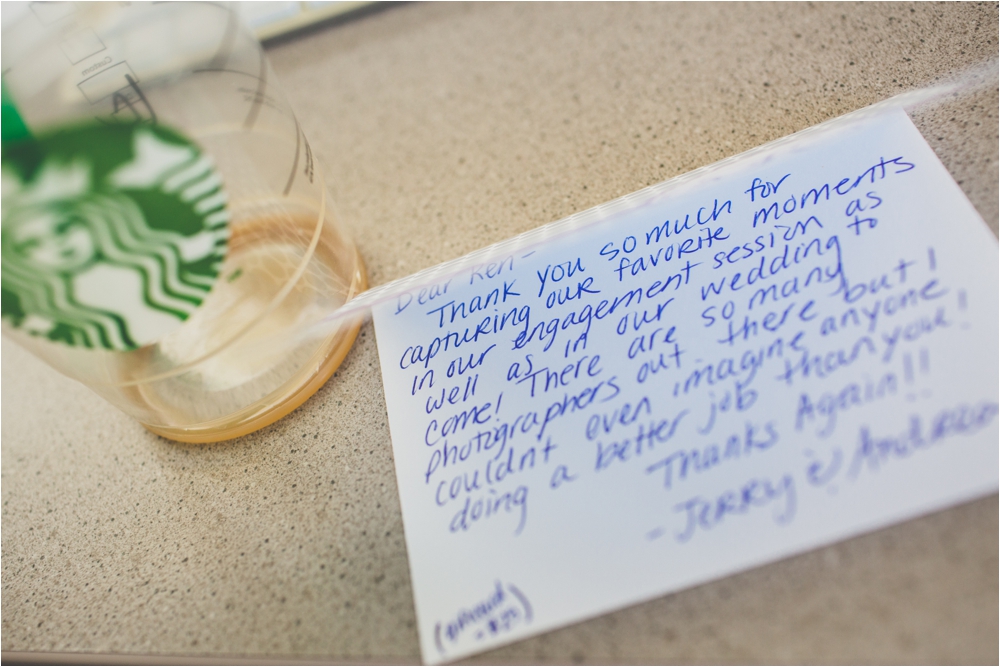 Custom
Dear Ken-
Thank you so much for
capturing our favorite moments
in our engagement session as
well as in our wedding to
come! There are so many
photographers out there but I
couldnt even imagine anyone
doing a better job than you!
Thanks Again!!
- Jerry &